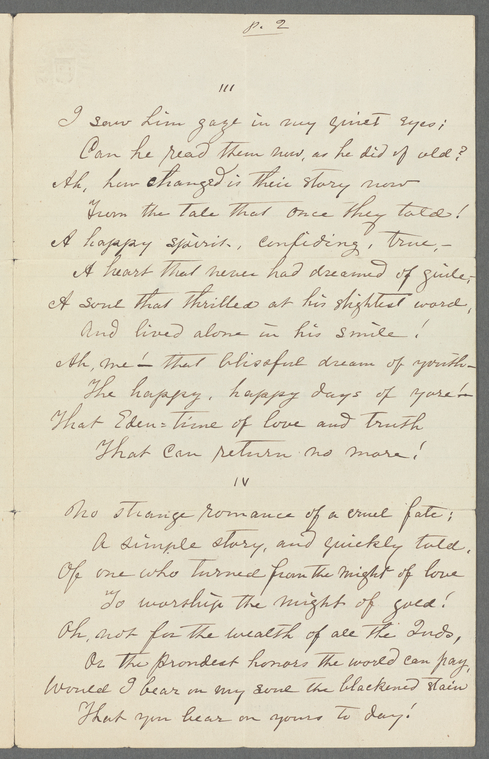 p. 2
III
I saw him gaze in my quiet eyes;
Can he read them now, as he did of old?
Ah, how changed is their story now
From the tale that once they told!
A happy spirit, confiding, true,—
A heart that never had dreamed of guile,—
A soul that thrilled at his slightest word,
And lived alone in his smile!
Ah, me!— that blissful dream of youth—
The happy, happy days of yore!—
That Eden=time of love and truth
That can return no more!
IV
No strange romance of a cruel fate;
A simple story, and quickly told,
Of one who turned from the might of love
To worship the might of gold!
Oh, not for the wealth of all the Inds,
Or the proudest honors the world can pay,
Would I bear on my soul the blackened stain
That you bear on yours to day!